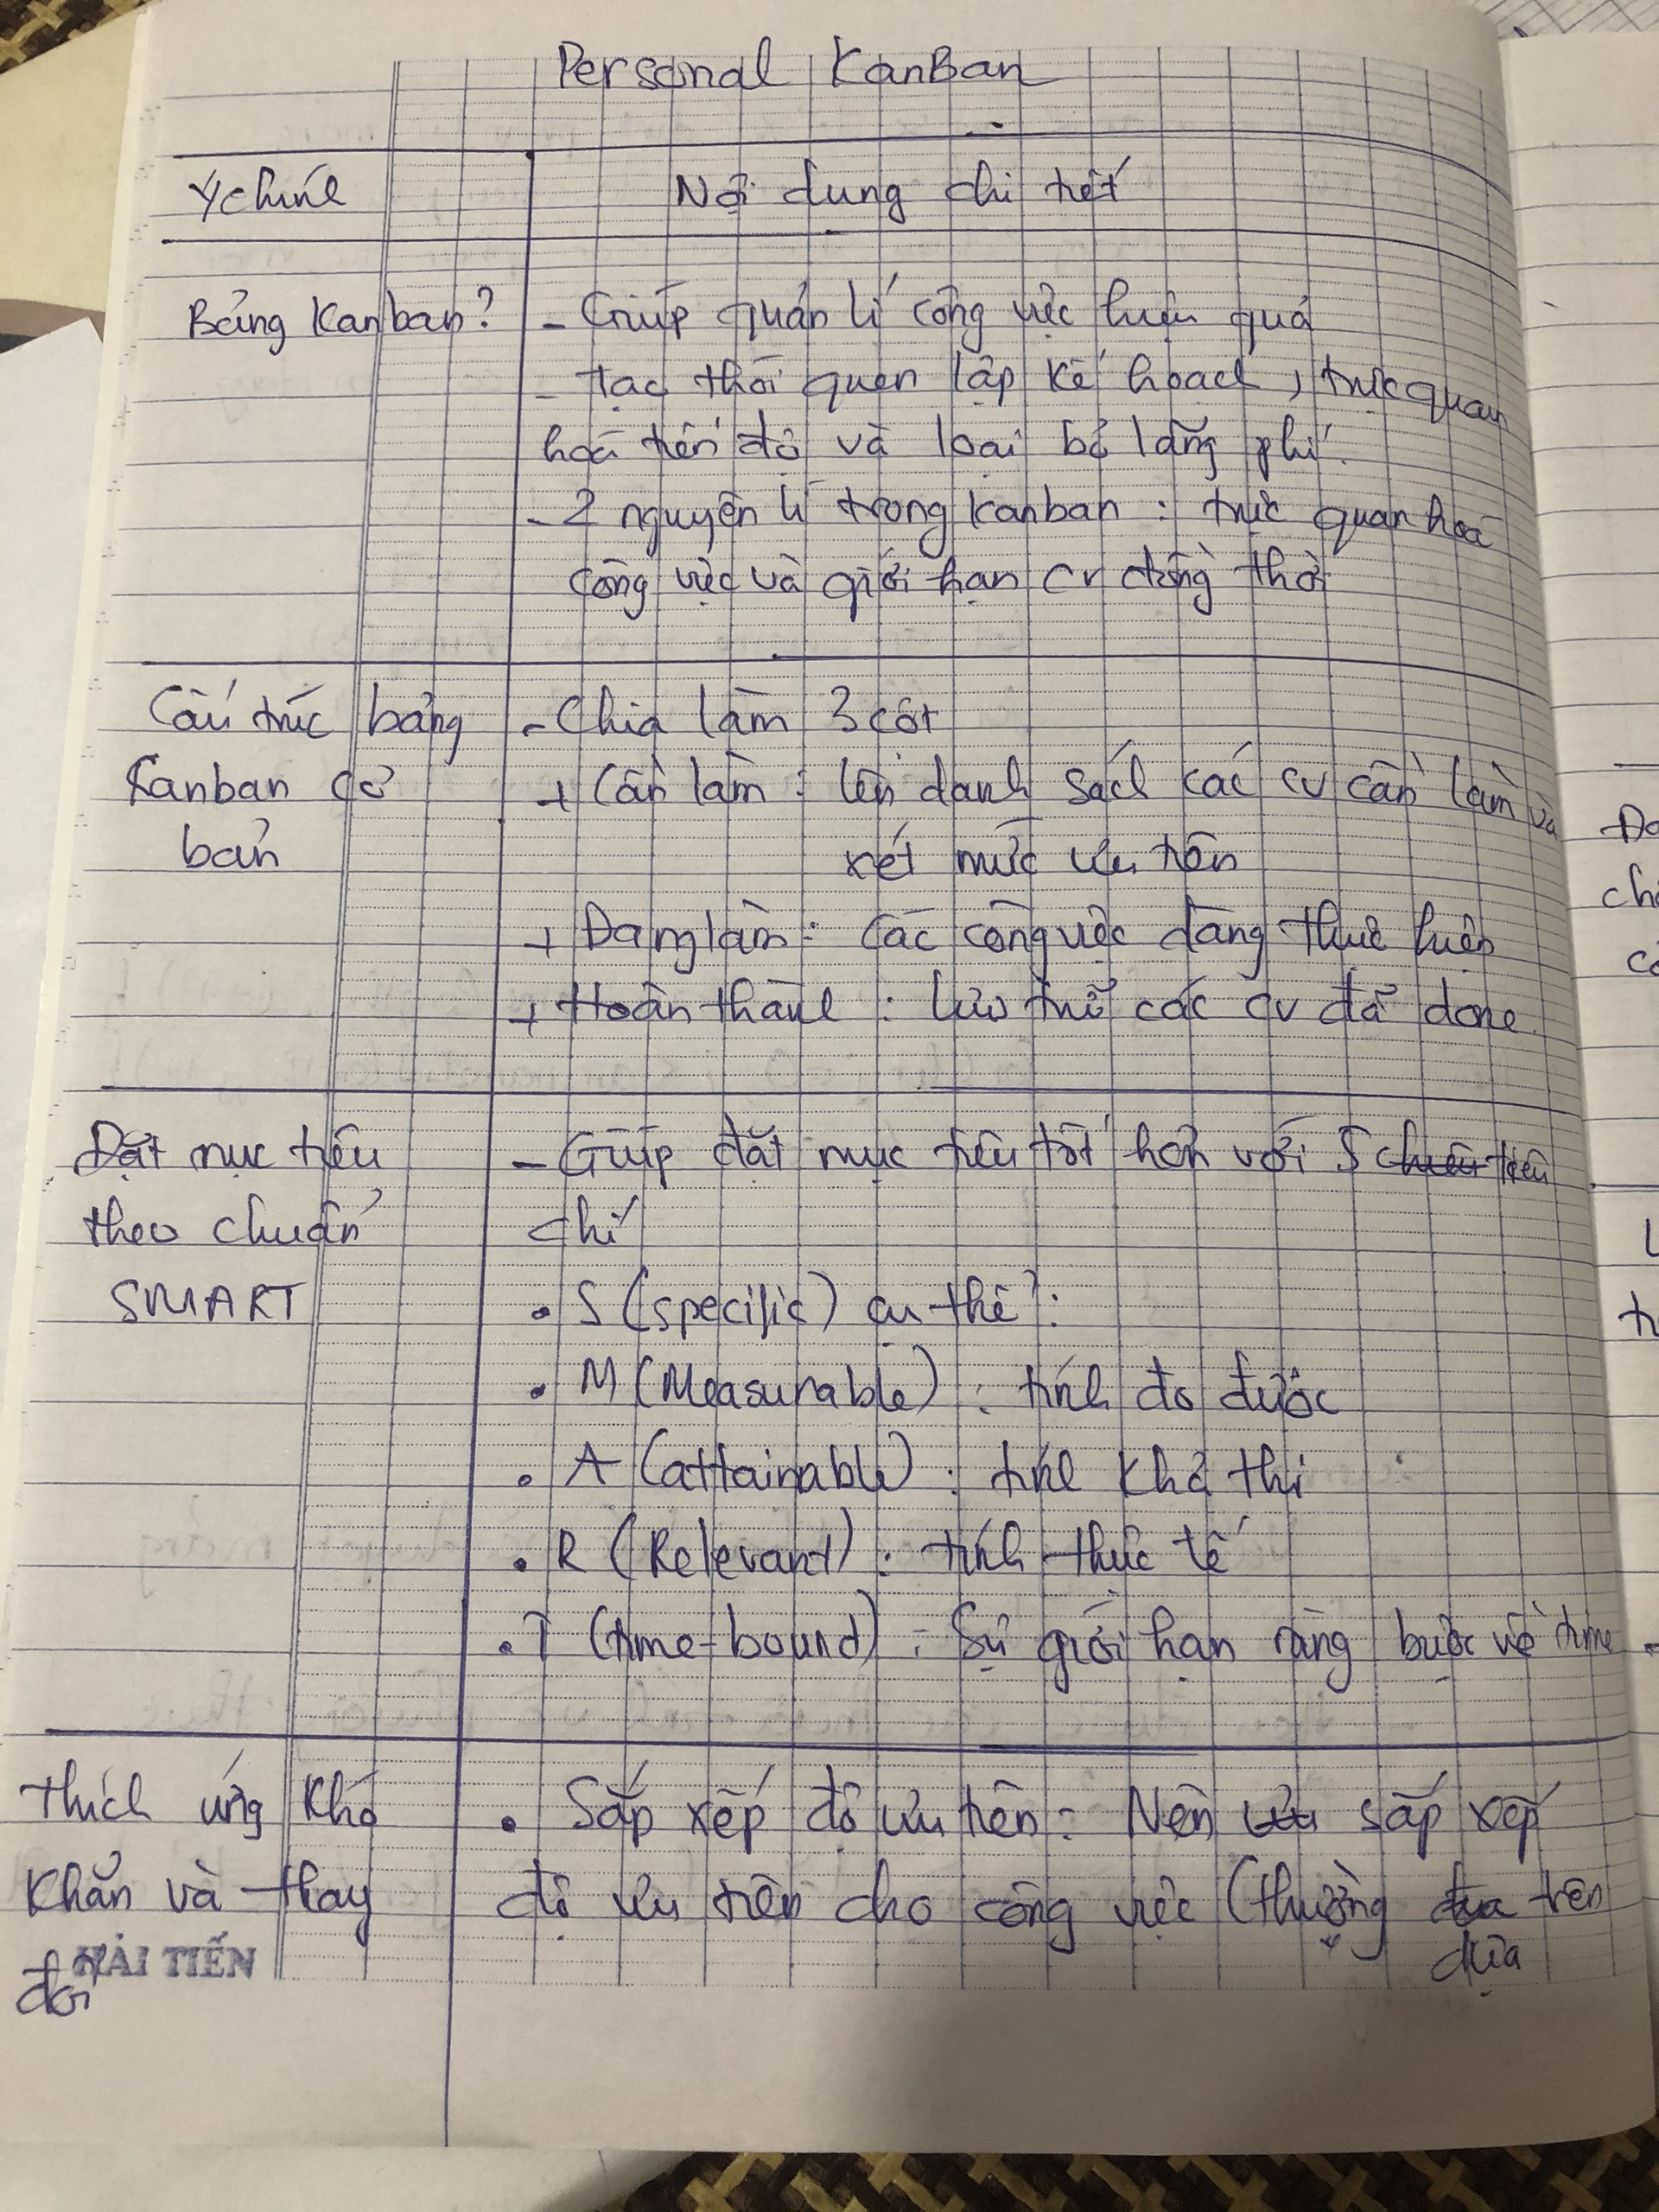 Personal KanBan
Ý chính
Nội dung chi tiết
Bảng Kanban?
- Giúp quản lí công việc hiệu quả
- tạo thói quen lập kế hoạch, trực quan
hoá tiến độ và loại bỏ lãng phí.
- 2 nguyên lí trong kanban : trực quan hoá
công việc và giới hạn cv đồng thời
Cấu trúc bảng
Kanban cơ
bản
- Chia làm 3 cột
+ Cần làm : lên danh sách các cv cần làm và
xét mức ưu tiên
+ Đang làm : Các công việc đang thực hiện
+ Hoàn thành : lưu trữ các cv đã done.
Đặt mục tiêu
theo chuẩn
SMART
- Giúp đặt mục tiêu tốt hơn với 5 tiêu
chí
• S (specific) cụ thể :
• M (Measurable) : tính đo được
• A (attainable) : tính khả thi
• R (Relevant) : tính thực tế
• T (time-bound) : Sự giới hạn ràng buộc về time.
Thích ứng khó
khăn và thay
đổi
• Sắp xếp độ ưu tiên : Nên sắp xếp
độ ưu tiên cho công việc (thường trên
dựa
HẢI TIẾN
Đo
ch